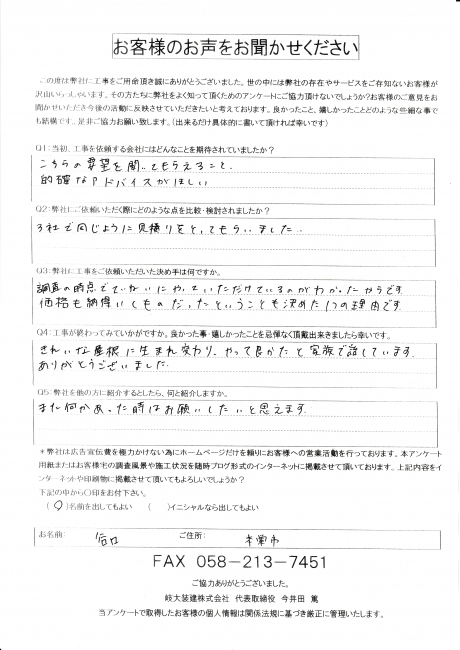 お客様のお声をお聞かせください
この度は弊社に工事をご用命頂き誠にありがとうございました。世の中には弊社の存在やサービスをご存知ないお客様が
沢山いらっしゃいます。その方たちに弊社をよく知って頂くためのアンケートにご協力頂けないでしょうか?お客様のご意見をお
聞かせいただき今後の活動に反映させていただきたいと考えております。良かったこと、嬉しかったことどのような些細な事で
も結構です。是非ご協力お願い致します。（出来るだけ具体的に書いて頂ければ幸いです）
Q1：当初、工事を依頼する会社にはどんなことを期待されていましたか?
こちらの要望を聞いてもらえること、
的確なアドバイスがほしい
Q2：弊社にご依頼いただく際にどのような点を比較・検討されましたか?
3社で同じように見積りをとってもらいました。
Q3：弊社に工事をご依頼いただいた決め手は何ですか。
調査の時点でていねいにやっていただけているのがわかったからです
価格も納得いくものだったということも決めた1つの理由です。
Q4：工事が終わってみていかがですか。良かった事・嬉しかったことを忌憚なく頂戴出来ましたら幸いです。
きれいな屋根に生まれ変わり、やって良かったと家族で話しています。
ありがとうございました。
Q5：弊社を他の方に紹介するとしたら、何と紹介しますか。
また何かあった時はお願いしたいと思えます。
＊弊社は広告宣伝費を極力かけない為にホームページだけを頼りにお客様への営業活動を行っております。本アンケート
用紙またはお客様宅の調査風景や施工状況を随時ブログ形式のインターネットに掲載させて頂いております。上記内容をイ
ンターネットや印刷物に掲載させて頂いてもよろしいでしょうか?
下記の中から○印をお付下さい。
（○）名前を出してもよい　（　　）イニシャルなら出してもよい
お名前：　谷口　ご住所：　本巣市
FAX 058-213-7451
ご協力ありがとうございました。
岐大装建株式会社 代表取締役 今井田 篤
当アンケートで取得したお客様の個人情報は関係法規に基づき厳正に管理いたします。